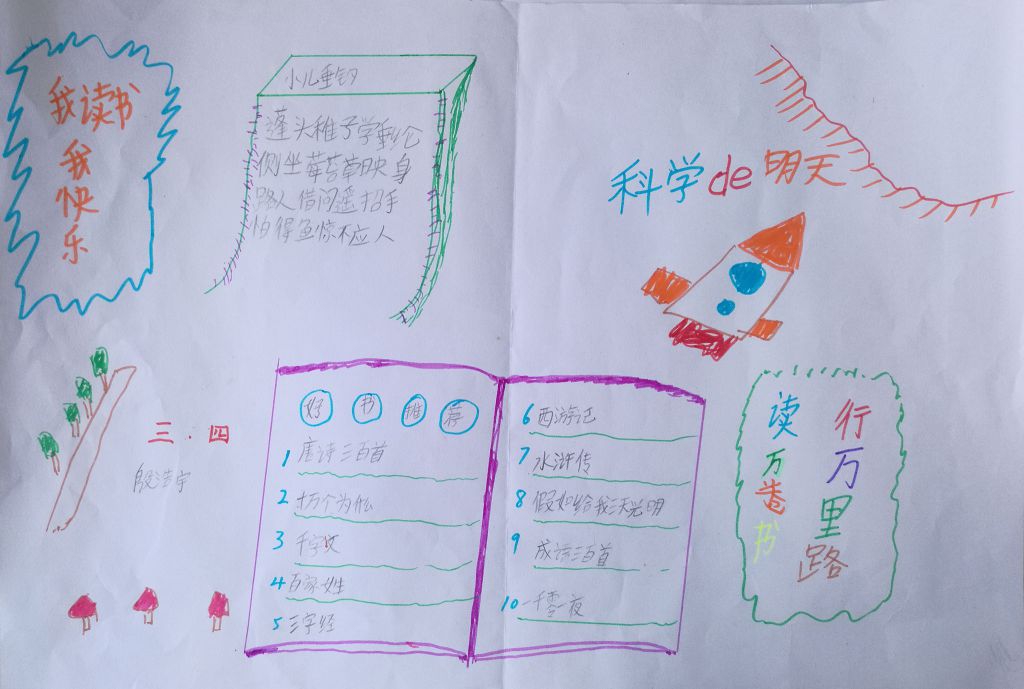 我读书
我
快
乐
小儿垂钓
蓬头稚子学垂纶
侧坐莓苔草映身
路人借问遥招手
怕得鱼惊不应人
科学de明天
三.四
殷浩宇
好书推荐
1 唐诗三百首
2 十万个为什么
3 千字文
4 百家姓
5 三字经
6 西游记
7 水浒传
8 假如给我三天光明
9 成语三百首
10 一千零一夜
读万卷书
行万里路